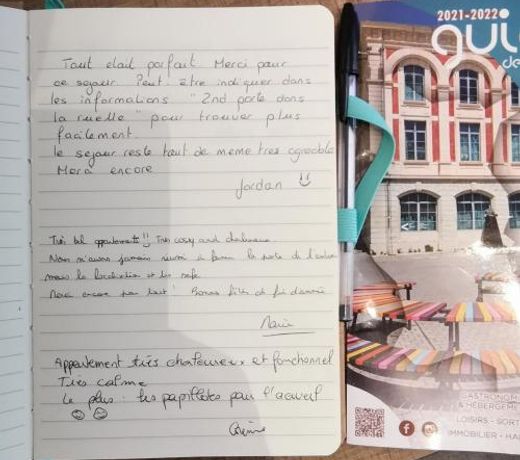 Tout etait parfait. Merci pour
ce sejour. Peut être indiquer dans
les informations "2nd porte dans
la ruelle" pour trouver plus
facilement.
le sejour reste tout de meme tres agreable
Merci encore
Jordan
Très bel appartement!! Très cosy and chaleureux.
Nous n'avons jamais réussi à fermer la porte de l'entrée
mais la localisation est très
Merci encore pour tout! Bonnes fêtes de fin d'année
Marie
Appartement très chaleureux et fonctionnel
Très calme
Le plus: les papillotes pour l'accueil
2021-2022
gui
de
GASTRONOM
& HÉBERGEM
LOISIRS - SORT
IMMOBILIER - HA